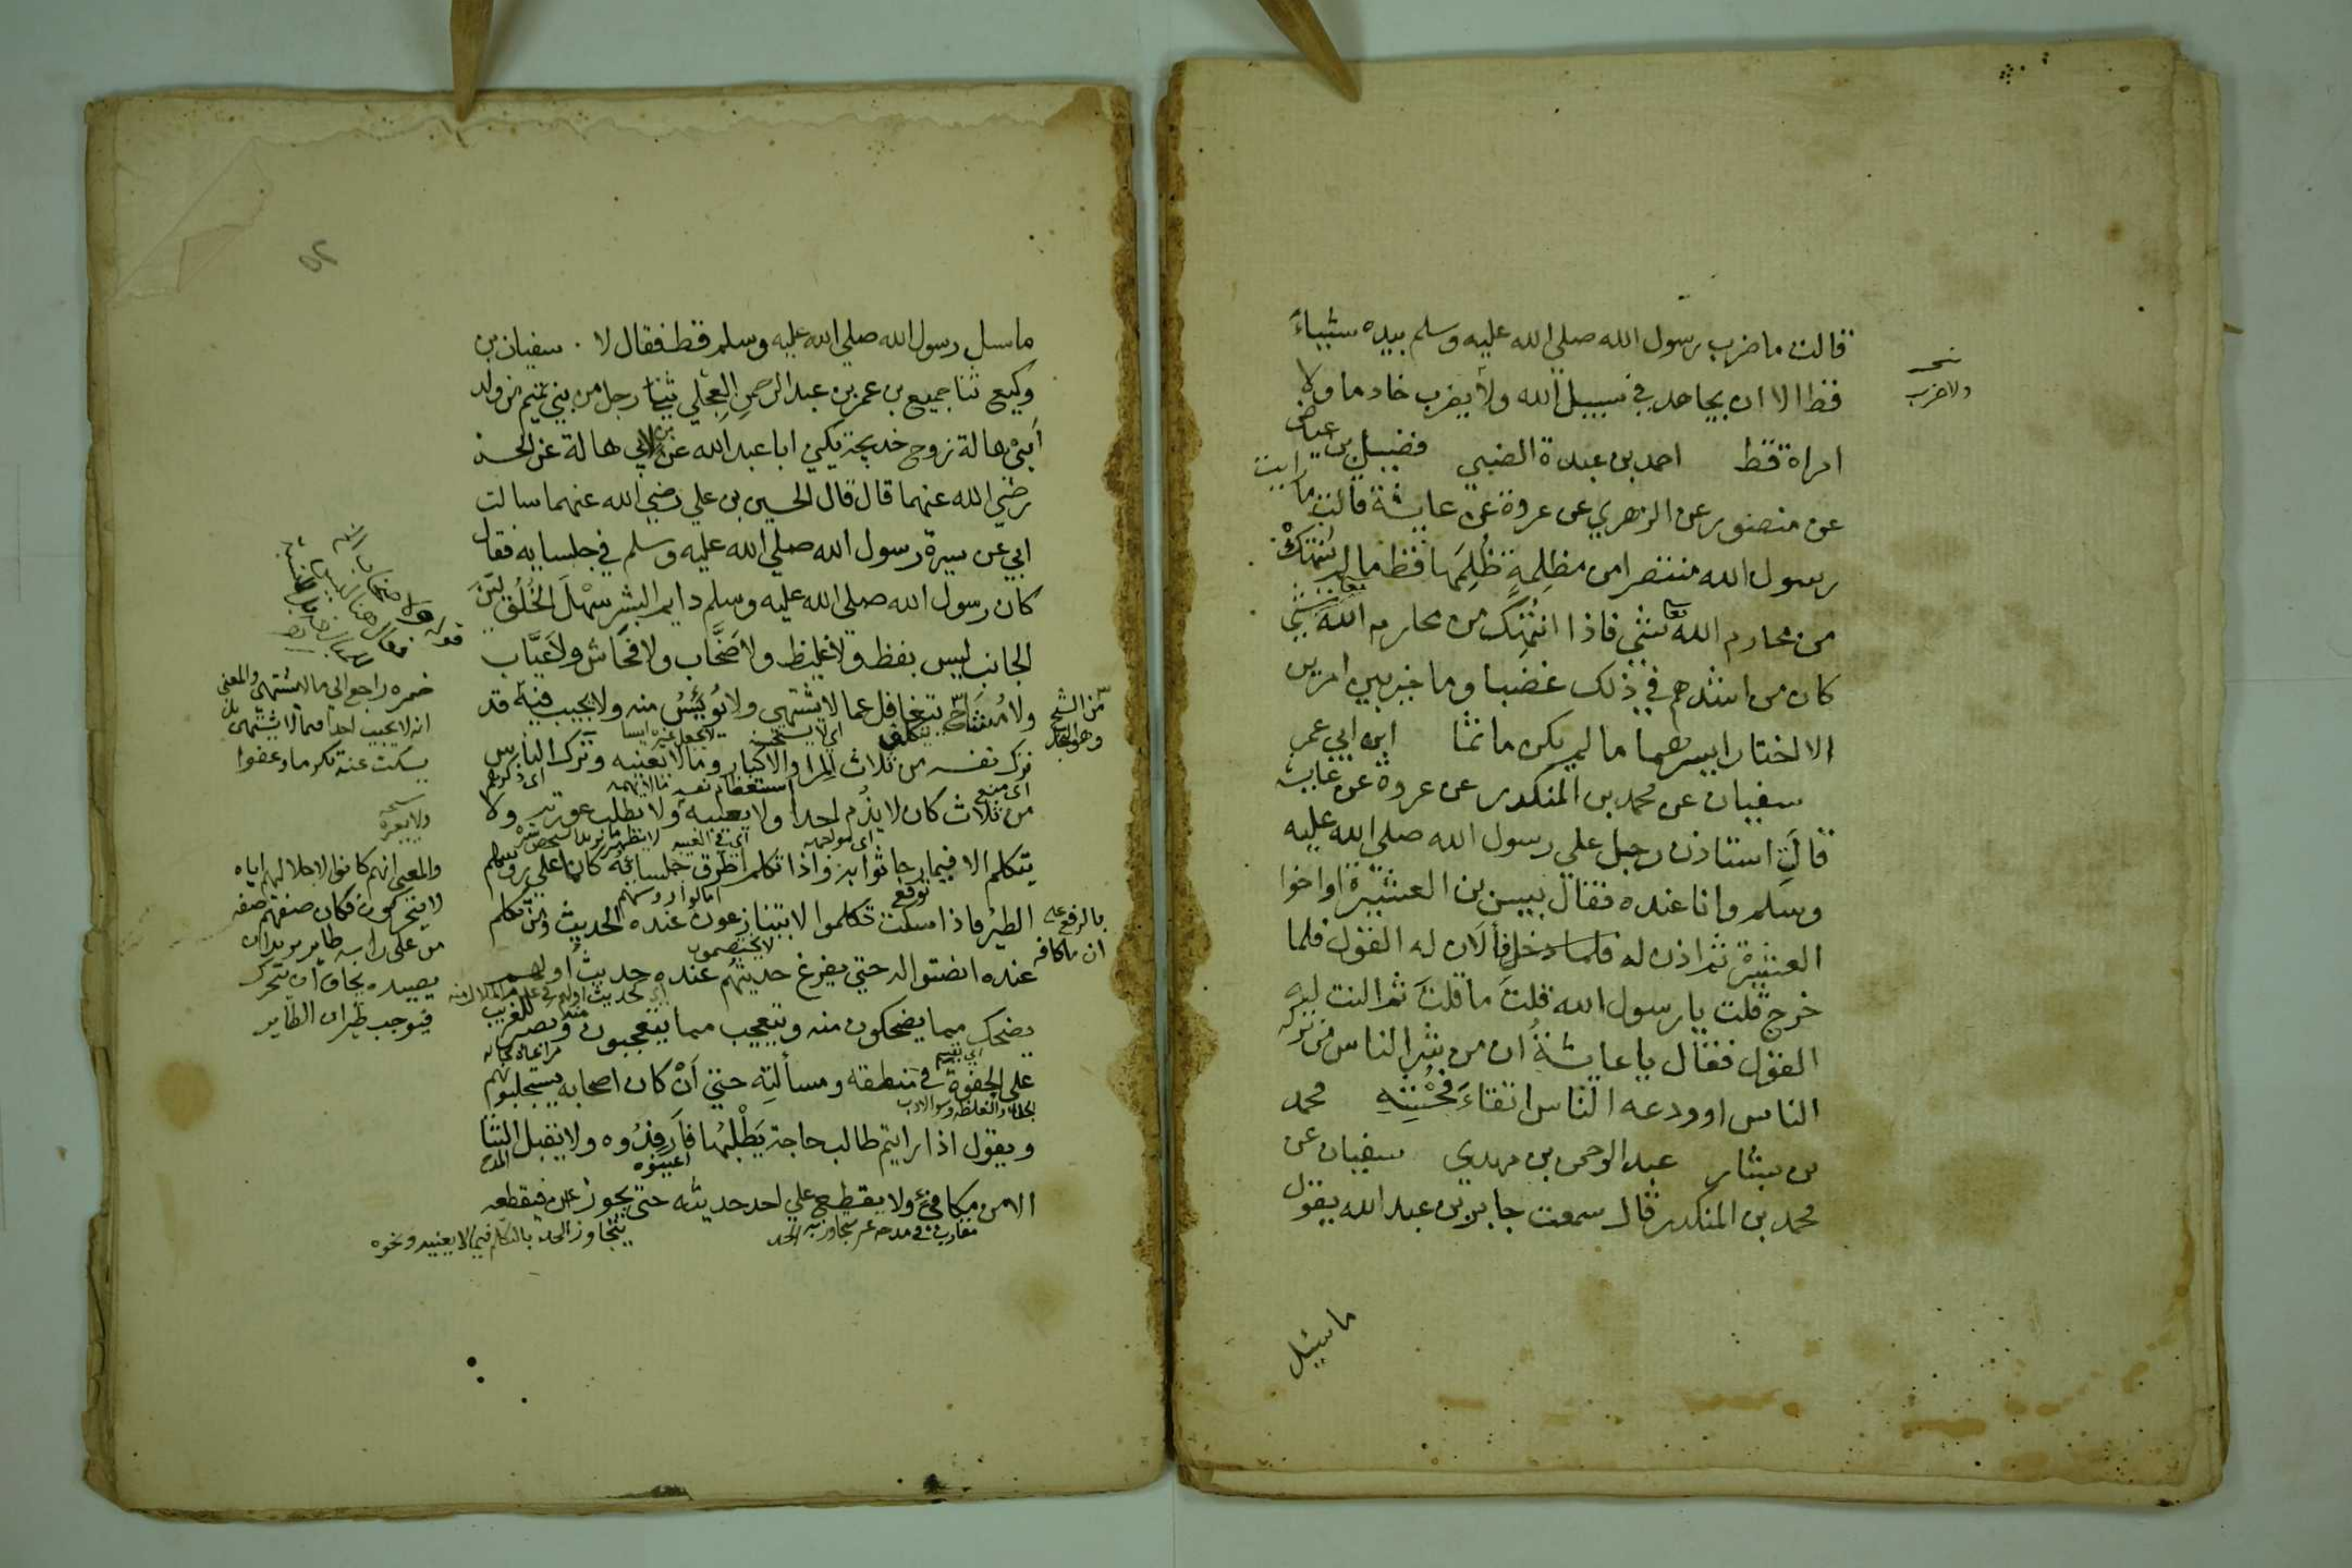 قالت ما ضرب رسول الله صلي الله عليه وسلم بيده شيئاً
قط الا ان يجاهد في سبيل الله ولا يضرب خادما ولا
امراة قط احمد بن عبدة الضبي فضيل بن عياض
عن منصور عن الزهري عن عروة عن عايشة قالت ما رايت
رسول الله منتصرا من مظلِمةٍ ظُلِمَها قط ما لم يُنتَهَكْ
من محارم الله تعا شئي فاذا انتُهِكَ من محارم الله تعا شئي
كان من اشدهم في ذلك غضبا وما خير بين امرين
الا اختار ايسرهما ما لم يكن ماثما ابن ابي عمر
سفيان عن محمد بن المنكدر عن عروة عن عايشة
قالَت استاذن رجل علي رسول الله صلي الله عليه
وسلم وانا عنده فقال بيس بن العشيرة او اخوا
العشيرة ثم اذن له فلما دخل فألاَن له القول فلما
خرج قلت يا رسول الله قلتَ ما قلتَ ثم النت له
القول فقال يا عايشةُ ان من شر الناس من تركه
الناس او ودعه الناس اتقاءَ فُحْشِهِ محمد
بن بشار عبد الرحمن بن مهدي سفيان عن
محمد بن المنكدر قال سمعت جابر بن عبد الله يقول
ما سئيل
ولا ضرب
ما سيل رسول الله صلي الله عليه وسلم قط فقال لا . سفيان بن
وكيع ثنا جميع بن عمر بن عبد الرحمن العِجْلي ثنا رجل من بني تميم من ولد
اَبيْ هالة زوج خديجة يكني ابا عبد الله عن بن لابي هالة عن الحسن
رضي الله عنهما قال قال الحسين بن علي رضي الله عنهما سالت
ابي عن سيرة رسول الله صلي الله عليه وسلم في جلسايه فقال
كان رسول الله صلي الله عليه وسلم دايم البشر سَهْلَ الخُلُق ليّن
الجانب ليس بفظ ولا غليظ ولا صَخَّاب ولا فحّاش ولا عيَّاب
ولا مُشَاحّ يتغافل عما لا يشتهي ولا يُويئسُ منه ولا يجيب فيه قد
ترك نفسه من ثلاث المرا والاكبار وما لا يعنيه وترك الناس
من ثلاث كان لا يذُم احدا ولا يعيبه ولا يطلب عورته ولا
يتكلم الا فيما رجا ثوابه واذا تكلم اطرق جلساؤه كانما علي رؤسهم
الطير فاذا سكت تكلموا لا يتنازعون عنده الحديث ومن تكلم
عنده انصتوا له حتي يفرغ حديثهم عنده حديث اولهم
يضحك مما يضحكون منه ويتعجب مما يتعجبون ويصبر للغريب
علي الجفوة في منطقه ومسألتِهِ حتي اَنْ كان اصحابه يستجلبونهم
ويقول اذا رايتم طالب حاجة يَطْلبُها فاَرفِدُوه ولا يقبل الثنا
الا من مكافئ ولا يقطع علي احد حديثه حتي يجوز فيقطعه
من الشح
وهو البخل
ضمره راجع الي ما لا يشتهي والمعني
انه لا يجيب احدا فيما لا يشتهي بل
يسكت عنه تكرما وعفوا
ولا يعيره
والمعني انهم كانوا لاجلالهم اياه
لا يتحركون فكان صفتهم صفة
من علي راسه طاير يريد ان
يصيده يخاف ان تحرك
فيوجب طيران الطاير
يتجاوز الحد بالتكلم فيما لا يعنيه ونحوه